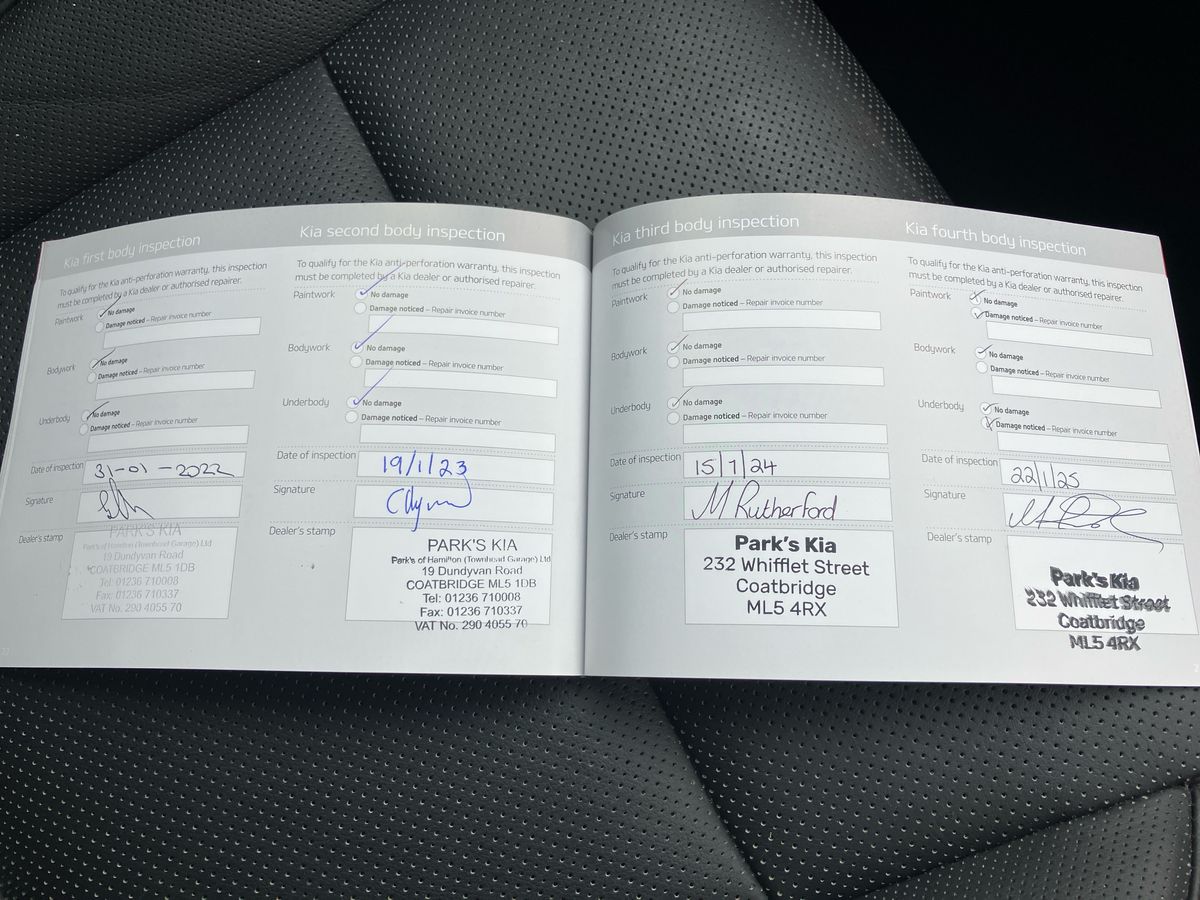 Kia first body inspection
To qualify for the Kia anti-perforation warranty, this inspection
must be completed by a Kia dealer or authorised repairer.
Paintwork
No damage
Damage noticed – Repair invoice number
Bodywork
No damage
Damage noticed – Repair invoice number
Underbody
No damage
Damage noticed – Repair invoice number
Date of inspection 31-01-2022
Signature
Dealer's stamp
PARK'S KIA
Park's of Hamilton (Townhead Garage) Ltd
19 Dundyvan Road
COATBRIDGE ML5 1DB
Tel: 01236 710008
Fax: 01236 710337
VAT No. 290 4055 70
Kia second body inspection
To qualify for the Kia anti-perforation warranty, this inspection
must be completed by a Kia dealer or authorised repairer.
Paintwork
No damage
Damage noticed – Repair invoice number
Bodywork
No damage
Damage noticed – Repair invoice number
Underbody
No damage
Damage noticed – Repair invoice number
Date of inspection 19/1/23
Signature
Dealer's stamp
PARK'S KIA
Park's of Hamilton (Townhead Garage) Ltd
19 Dundyvan Road
COATBRIDGE ML5 1DB
Tel: 01236 710008
Fax: 01236 710337
VAT No. 290 4055 70
Kia third body inspection
To qualify for the Kia anti-perforation warranty, this inspection
must be completed by a Kia dealer or authorised repairer.
Paintwork
No damage
Damage noticed – Repair invoice number
Bodywork
No damage
Damage noticed – Repair invoice number
Underbody
No damage
Damage noticed – Repair invoice number
Date of inspection 15/1/24
Signature M Rutherford
Dealer's stamp
Park's Kia
232 Whifflet Street
Coatbridge
ML5 4RX
Kia fourth body inspection
To qualify for the Kia anti-perforation warranty, this inspection
must be completed by a Kia dealer or authorised repairer.
Paintwork
No damage
Damage noticed – Repair invoice number
Bodywork
No damage
Damage noticed – Repair invoice number
Underbody
No damage
Damage noticed – Repair invoice number
Date of inspection 22/1/25
Signature
Dealer's stamp
Park's Kia
232 Whifflet Street
Coatbridge
ML5 4RX